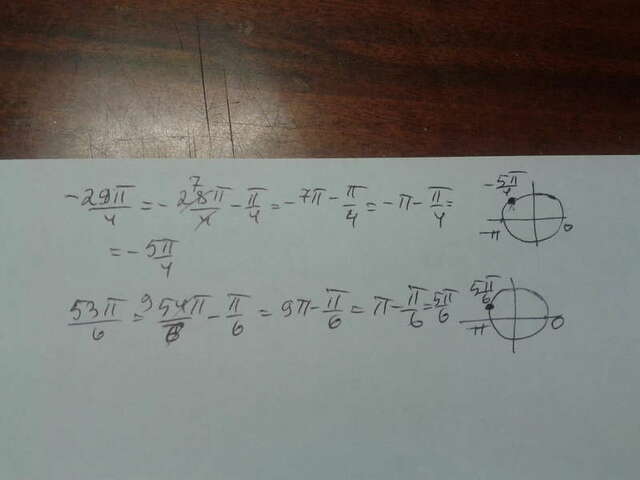 -29π/4 = -28π/4 7 - π/4 = -7π - π/4 = -π - π/4 =
-5π/4
-π
0
= -5π/4
53π/6 = 9 54π/6 - π/6 = 9π - π/6 = π - π/6 = 5π/6
5π/6
π
0